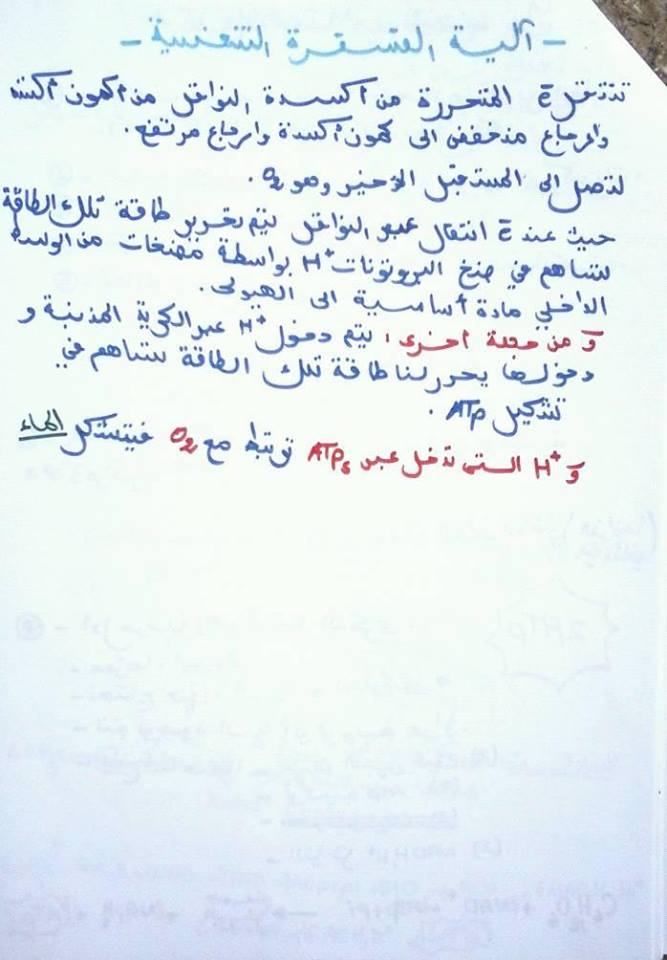 - آلية الفسفرة التنفسية -
تنتقل ē المتحررة من أكسدة النواقل من كمون أكسدة
وارجاع منخفض الى كمون أكسدة وارجاع مرتفع.
لتصل الى المستقبل الأخير وهو O₂.
حيث عند ē انتقال عبر النواقل يتم تحرير طاقة تلك الطاقة
تساهم في ضخ البروتونات H⁺ بواسطة مضخات من الوسط
الداخلي مادة أساسية الى الهيولى.
و من جهة أخرى: يتم دخول H⁺ عبر الكرية المذنبة و
دخولها يحرر لنا طاقة تلك الطاقة تساهم في
تشكيل ATP.
و H⁺ التي تدخل عبر ATPs ترتبط مع O₂ فيتشكل الماء